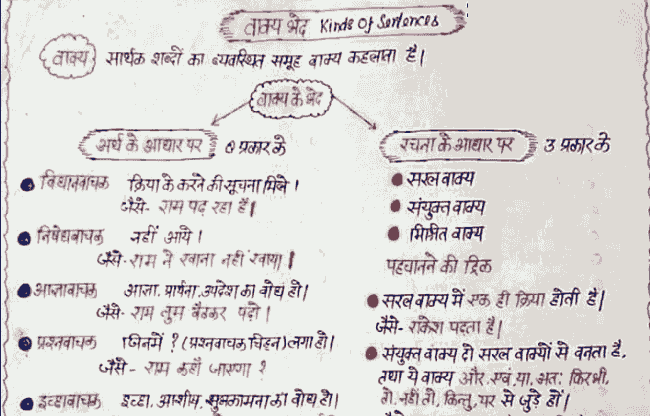 वाक्य भेद Kinds Of Sentences
वाक्य सार्थक शब्दों का व्यवस्थित समूह वाक्य कहलाता है।
वाक्य के भेद
अर्थ के आधार पर 8 प्रकार के
विधानवाचक क्रिया के करने की सूचना मिले।
जैसे- राम पढ़ रहा है।
निषेधवाचक नहीं आये।
जैसे- राम ने खाना नहीं खाया।
आज्ञावाचक आज्ञा, प्रार्थना, उपदेश का बोध हो।
जैसे- राम तुम बैठकर पढ़ो।
प्रश्नवाचक जिनमें ? (प्रश्नवाचक चिह्न) लगा हो।
जैसे- राम कहाँ जाएगा ?
इच्छावाचक इच्छा, आशीष, शुभकामना का बोध हो।
रचना के आधार पर 3 प्रकार के
सरल वाक्य
संयुक्त वाक्य
मिश्रित वाक्य
पहचानने की ट्रिक
सरल वाक्य में एक ही क्रिया होती है।
जैसे- राकेश पढ़ता है।
संयुक्त वाक्य दो सरल वाक्यों से बनता है,
तथा ये वाक्य और, एवं, या, अतः फिर भी,
तो, नहीं तो, किन्तु, पर से जुड़े हों।